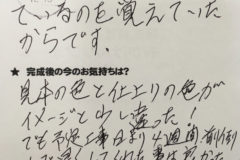 ているのを覚えていた
からです。
★ 完成後の今のお気持ちは？
見本の色と仕上りの色が
イメージと少し違った。
でも予定工事日より4週間、前倒し